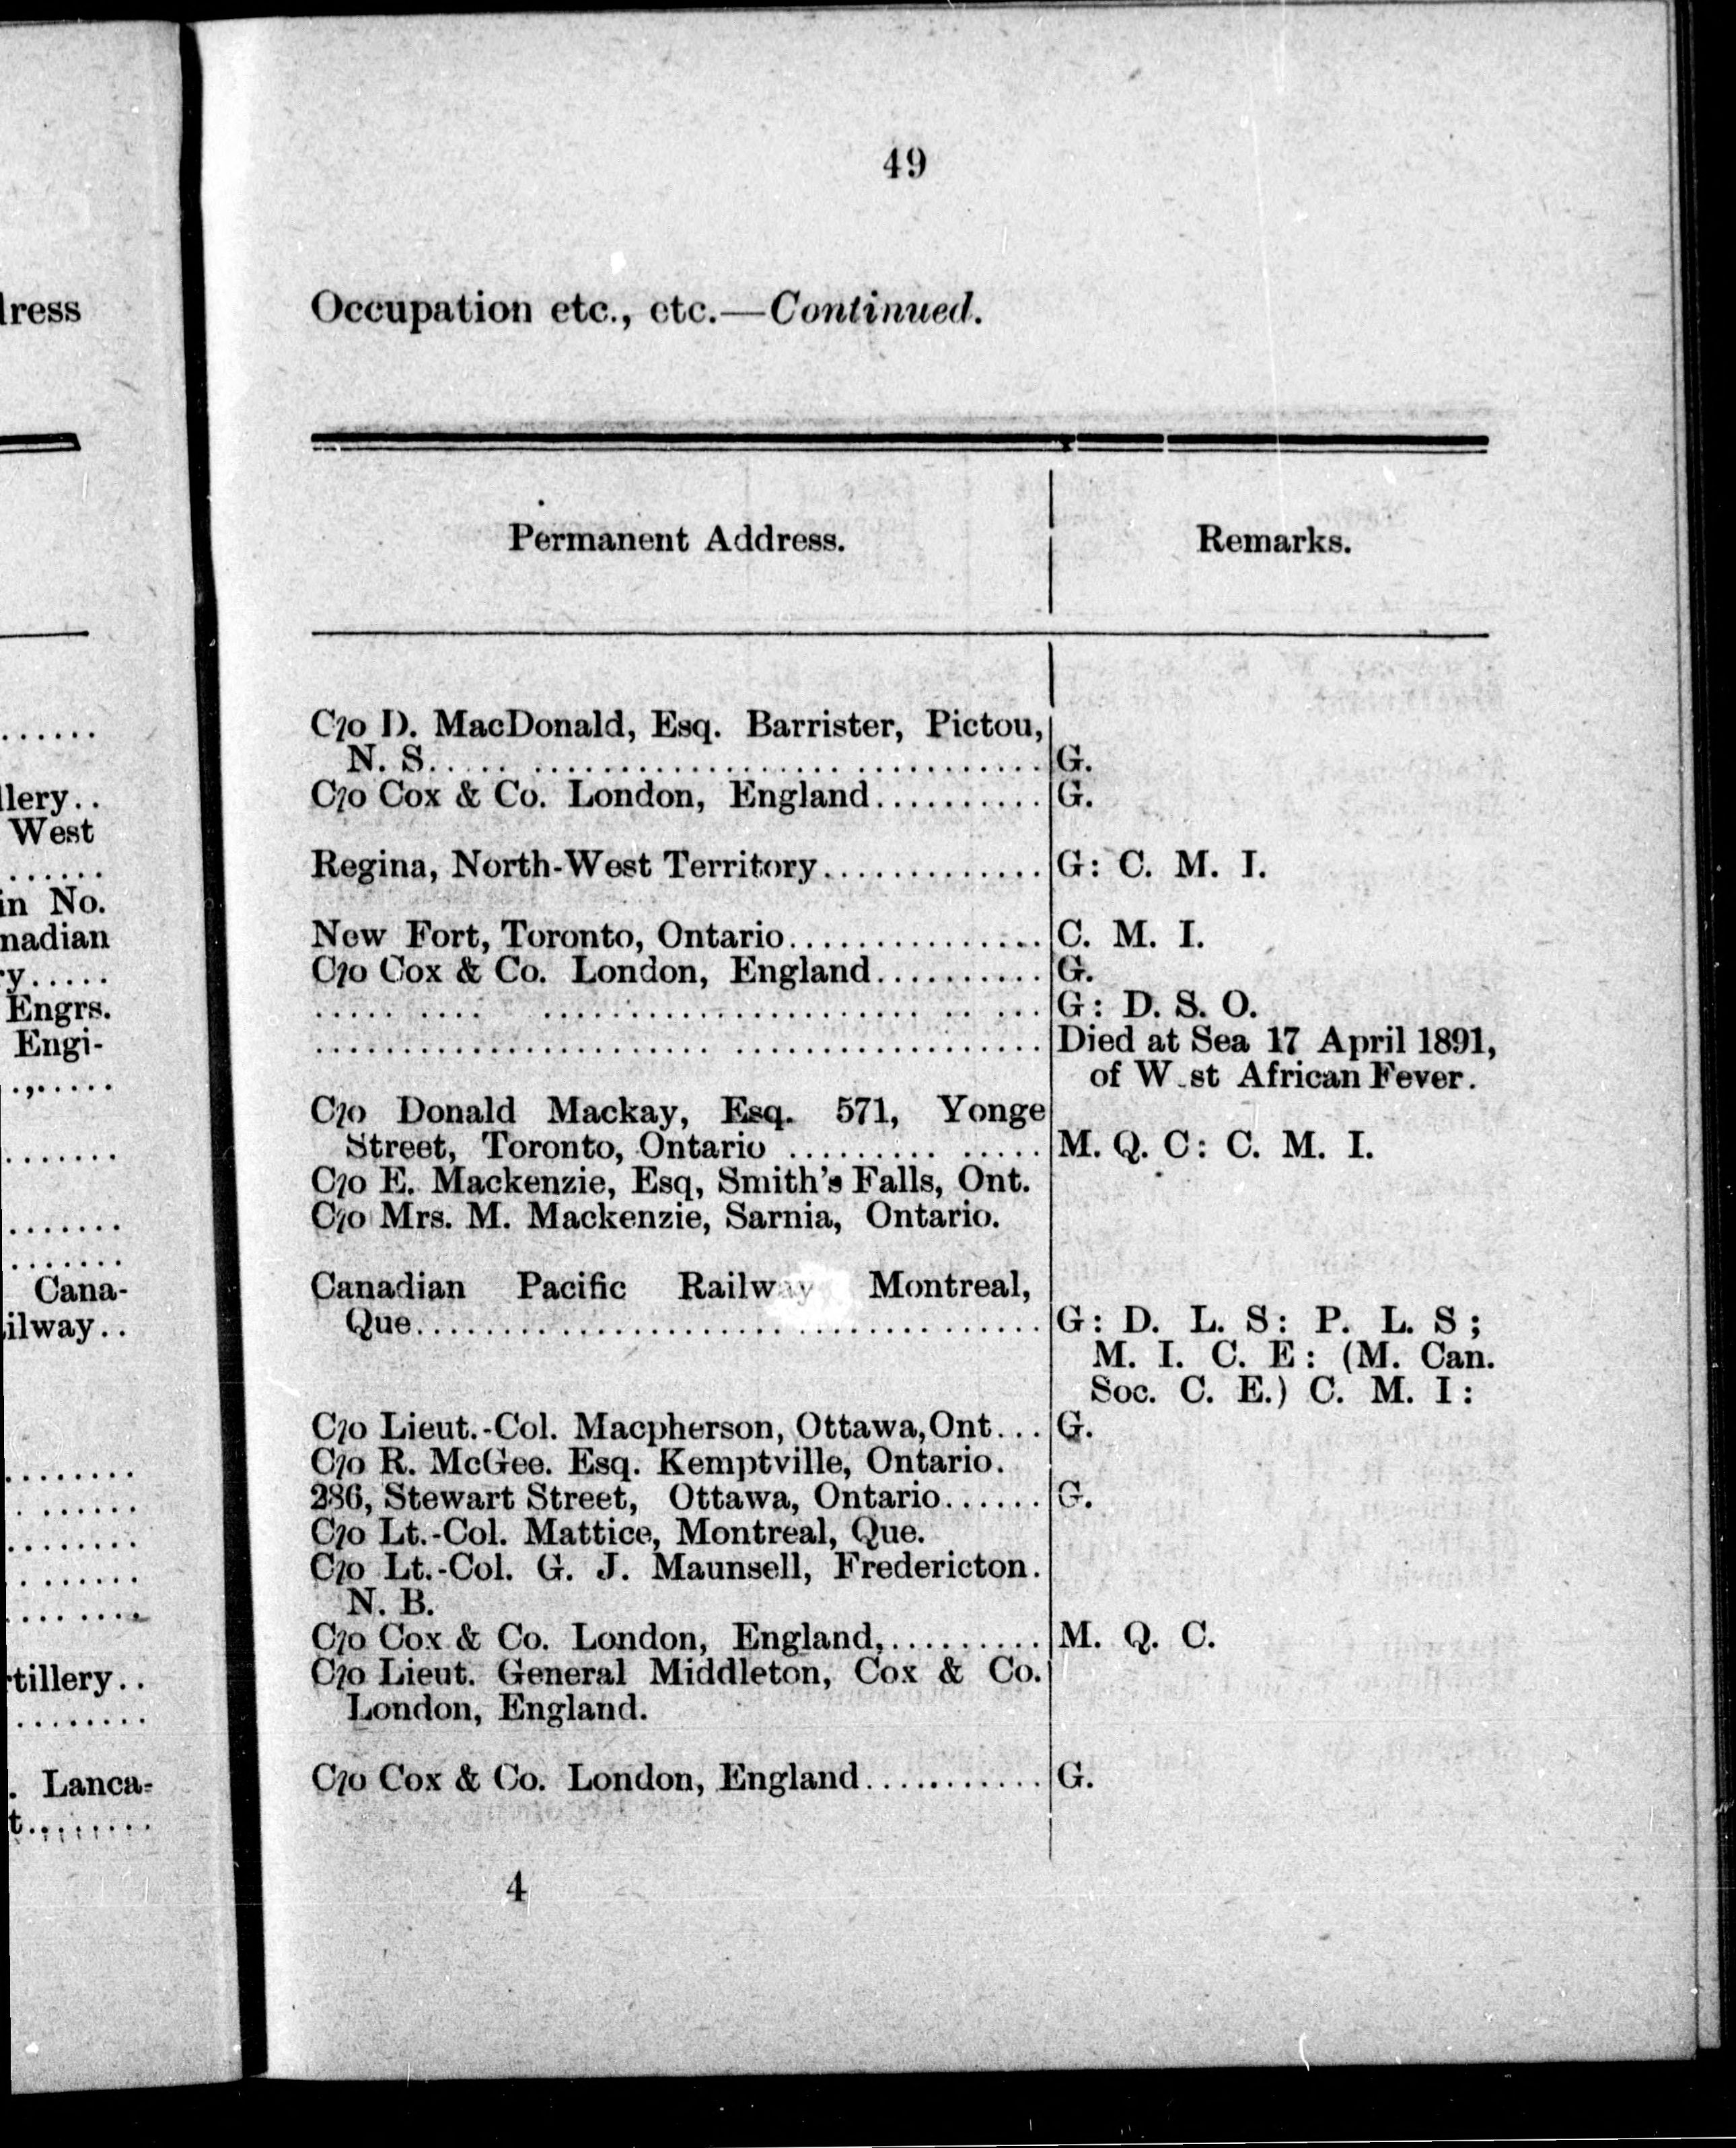 49
Occupation etc., etc.—Continued.
Permanent Address.
Remarks.
C/o D. MacDonald, Esq. Barrister, Pictou,
N. S. .................................... G.
C/o Cox & Co. London, England.......... G.
Regina, North-West Territory............. G: C. M. I.
New Fort, Toronto, Ontario............... C. M. I.
C/o Cox & Co. London, England.......... G.
..... .... ....................... .. ... G: D. S. O.
........................ .................. Died at Sea 17 April 1891,
of W st African Fever.
C/o Donald Mackay, Esq. 571, Yonge
Street, Toronto, Ontario ......... ..... M. Q. C: C. M. I.
C/o E. Mackenzie, Esq, Smith's Falls, Ont.
C/o Mrs. M. Mackenzie, Sarnia, Ontario.
Canadian Pacific Railway Montreal,
Que..................................... G: D. L. S: P. L. S;
M. I. C. E: (M. Can.
Soc. C. E.) C. M. I:
C/o Lieut.-Col. Macpherson, Ottawa, Ont... G.
C/o R. McGee. Esq. Kemptville, Ontario.
286, Stewart Street, Ottawa, Ontario...... G.
C/o Lt.-Col. Mattice, Montreal, Que.
C/o Lt.-Col. G. J. Maunsell, Fredericton.
N. B.
C/o Cox & Co. London, England,......... M. Q. C.
C/o Lieut. General Middleton, Cox & Co.
London, England.
C/o Cox & Co. London, England........... G.
4
dress
llery..
West
in No.
nadian
y.....
Engrs.
Engi-
Cana-
ilway..
tillery..
. Lanca-
t........